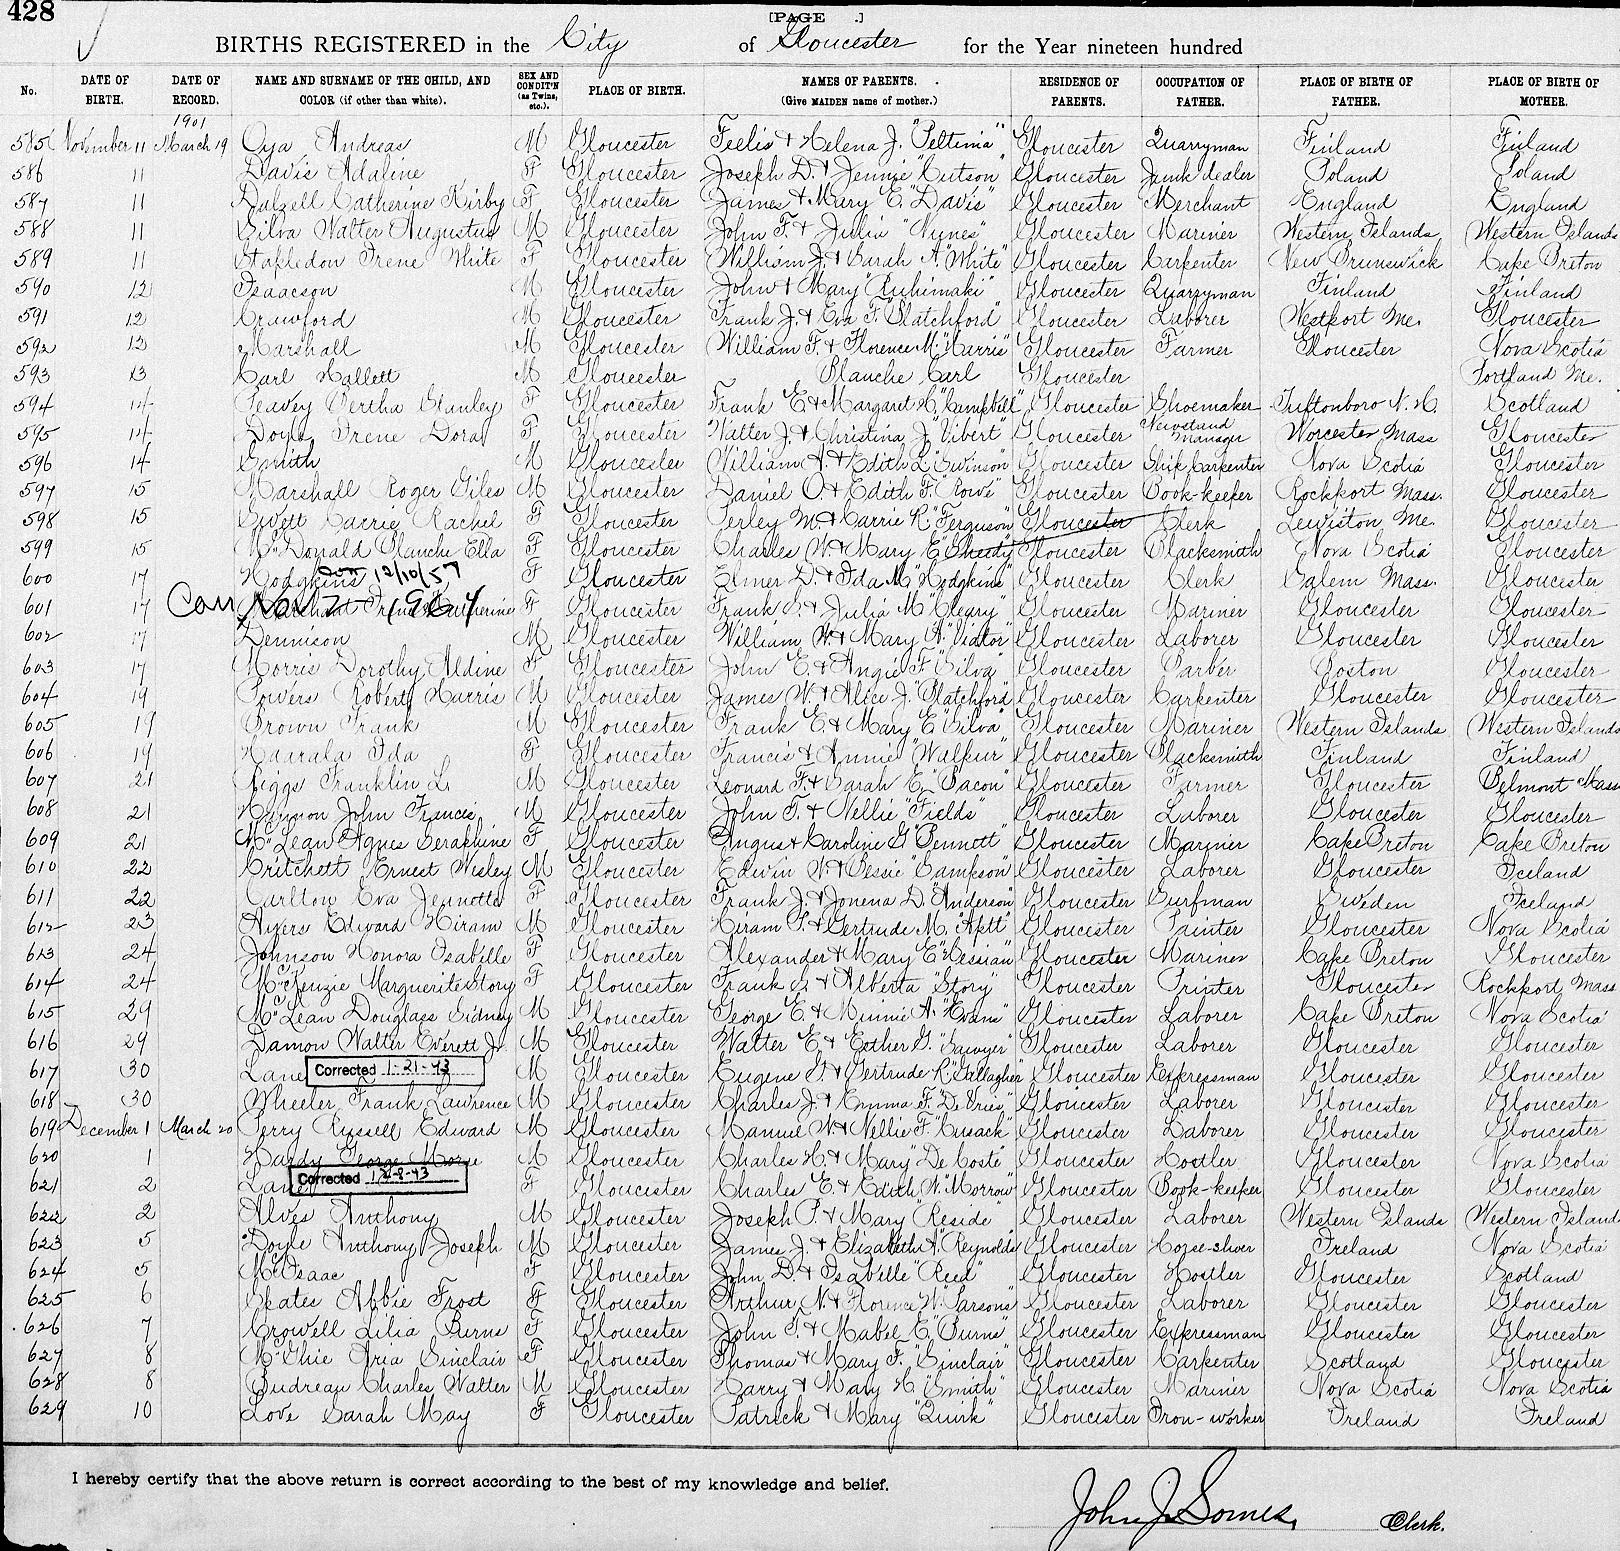 428
[PAGE .]
BIRTHS REGISTERED in the City of Gloucester for the Year nineteen hundred
No. DATE OF BIRTH. DATE OF RECORD. NAME AND SURNAME OF THE CHILD, AND COLOR (if other than white). SEX AND CONDIT'N (as Twins, etc.). PLACE OF BIRTH. NAMES OF PARENTS. (Give MAIDEN name of mother.) RESIDENCE OF PARENTS. OCCUPATION OF FATHER. PLACE OF BIRTH OF FATHER. PLACE OF BIRTH OF MOTHER.
1901
585 November 11 March 19 Oja Andreas M Gloucester Feelis & Helena J. "Peltima" Gloucester Quarryman Finland Finland
586 11 Davis Adaline F Gloucester Joseph D. & Jennie "Cutson" Gloucester Junk dealer Poland Poland
587 11 Dalzell Catherine Kirby F Gloucester James & Mary E. "Davis" Gloucester Merchant England England
588 11 Silva Walter Augustus M Gloucester John F. & Julia "Vynes" Gloucester Mariner Western Islands Western Islands
589 11 Stapledon Irene White F Gloucester William J. & Sarah A. "White" Gloucester Carpenter New Brunswick Cape Breton
590 12 Isaacson M Gloucester John & Mary "Ruhimaki" Gloucester Quarryman Finland Finland
591 12 Crawford M Gloucester Frank J. & Eva F. "Blatchford" Gloucester Laborer Westport Me. Gloucester
592 12 Marshall M Gloucester William F. & Florence M. "Harris" Gloucester Farmer Gloucester Nova Scotia
593 13 Carl Hallett M Gloucester Blanche Carl Gloucester Portland Me.
594 14 Peavey Bertha Stanley F Gloucester Frank E. & Margaret H. "Campbell" Gloucester Shoemaker Tuftonboro N.H. Scotland
595 14 Doyle Irene Dora F Gloucester Walter J. & Christina J. "Vibert" Gloucester Newstand Manager Worcester Mass Gloucester
596 14 Smith M Gloucester William A. & Edith L. "Swinson" Gloucester Ship Carpenter Nova Scotia Gloucester
597 15 Marshall Roger Giles M Gloucester Daniel O. & Edith F. "Rowe" Gloucester Book-keeper Rockport Mass. Gloucester
598 15 Swett Carrie Rachel F Gloucester Perley M. & Carrie R. "Ferguson" Gloucester Clerk Lewiston Me. Gloucester
599 15 McDonald Blanche Ella F Gloucester Charles W. & Mary E. "Sheedy" Gloucester Blacksmith Nova Scotia Gloucester
600 17 Hodgkins 12/10/57 F Gloucester Elmer D. & Ida M. "Hodgkins" Gloucester Clerk Salem Mass. Gloucester
601 17 Marchant Irene Catherine F Gloucester Frank S. & Julia M. "Cleary" Gloucester Mariner Gloucester Gloucester
602 17 Dennison M Gloucester William W. & Mary A. "Viator" Gloucester Laborer Gloucester Gloucester
603 17 Morris Dorothy Aldine F Gloucester John E. & Angie F. "Silva" Gloucester Barber Boston Gloucester
604 19 Powers Robert Harris M Gloucester James W. & Alice J. "Blatchford" Gloucester Carpenter Gloucester Gloucester
605 19 Brown Frank M Gloucester Frank E. & Mary E. "Silva" Gloucester Mariner Western Islands Western Islands
606 19 Haarala Ida F Gloucester Francis & Annie "Walpur" Gloucester Blacksmith Finland Finland
607 21 Riggs Franklin L. M Gloucester Leonard F. & Sarah E. "Bacon" Gloucester Farmer Gloucester Belmont Mass
608 21 Hannon John Francis M Gloucester John T. & Nellie "Fields" Gloucester Laborer Gloucester Gloucester
609 21 McLean Agnes Seraphine F Gloucester Angus & Caroline G. "Bennett" Gloucester Mariner Cape Breton Cape Breton
610 22 Critchett Ernest Wesley M Gloucester Edwin W. & Bessie "Sampson" Gloucester Laborer Gloucester Iceland
611 22 Carlton Eva Jennette F Gloucester Frank J. & Jonena D. "Anderson" Gloucester Surfman Sweden Iceland
612 23 Ayers Edward Hiram M Gloucester Hiram P. & Gertrude M. "Aptt" Gloucester Painter Gloucester Nova Scotia
613 24 Johnson Honora Isabelle F Gloucester Alexander & Mary E. "Cessian" Gloucester Mariner Cape Breton Gloucester
614 24 McKenzie Marguerite Story F Gloucester Frank S. & Alberta "Story" Gloucester Printer Gloucester Rockport Mass
615 29 McLean Douglass Sidney M Gloucester George E. & Minnie A. "Evans" Gloucester Laborer Cape Breton Nova Scotia
616 29 Damon Walter Everett Jr. M Gloucester Walter E. & Esther G. "Sawyer" Gloucester Laborer Gloucester Gloucester
617 30 Lane Corrected 1-21-43 M Gloucester Eugene S. & Gertrude R. "Gallagher" Gloucester Expressman Gloucester Gloucester
618 30 Wheeler Frank Lawrence M Gloucester Charles J. & Emma F. "DeVries" Gloucester Laborer Gloucester Gloucester
619 December 1 March 20 Perry Russell Edward M Gloucester Manuel W. & Nellie F. "Cusack" Gloucester Laborer Gloucester Gloucester
620 1 Hardy George Morse M Gloucester Charles H. & Mary "De Coste" Gloucester Hostler Gloucester Nova Scotia
621 2 Lane Corrected F Gloucester Charles E. & Edith W. "Morrow" Gloucester Book-keeper Gloucester Gloucester
622 2 Alves Anthony M Gloucester Joseph P. & Mary Reside Gloucester Laborer Western Islands Western Islands
623 5 Doyle Anthony Joseph M Gloucester James J. & Elizabeth A. "Reynolds" Gloucester Horse-shoer Ireland Nova Scotia
624 5 McIsaac F Gloucester John D. & Isabelle "Reed" Gloucester Hostler Gloucester Scotland
625 6 Skates Abbie Frost F Gloucester Arthur N. & Florence W. "Parsons" Gloucester Laborer Gloucester Gloucester
626 7 Crowell Lilia Burns F Gloucester John S. & Mabel E. "Burns" Gloucester Expressman Gloucester Gloucester
627 8 McGhie Aria Sinclair F Gloucester Thomas & Mary F. "Sinclair" Gloucester Carpenter Scotland Gloucester
628 8 Budreau Charles Walter M Gloucester Harry & Mary H. "Smith" Gloucester Mariner Nova Scotia Nova Scotia
629 10 Love Sarah May F Gloucester Patrick & Mary "Quirk" Gloucester Iron-worker Ireland Ireland
I hereby certify that the above return is correct according to the best of my knowledge and belief.
John J. Somes, Clerk.